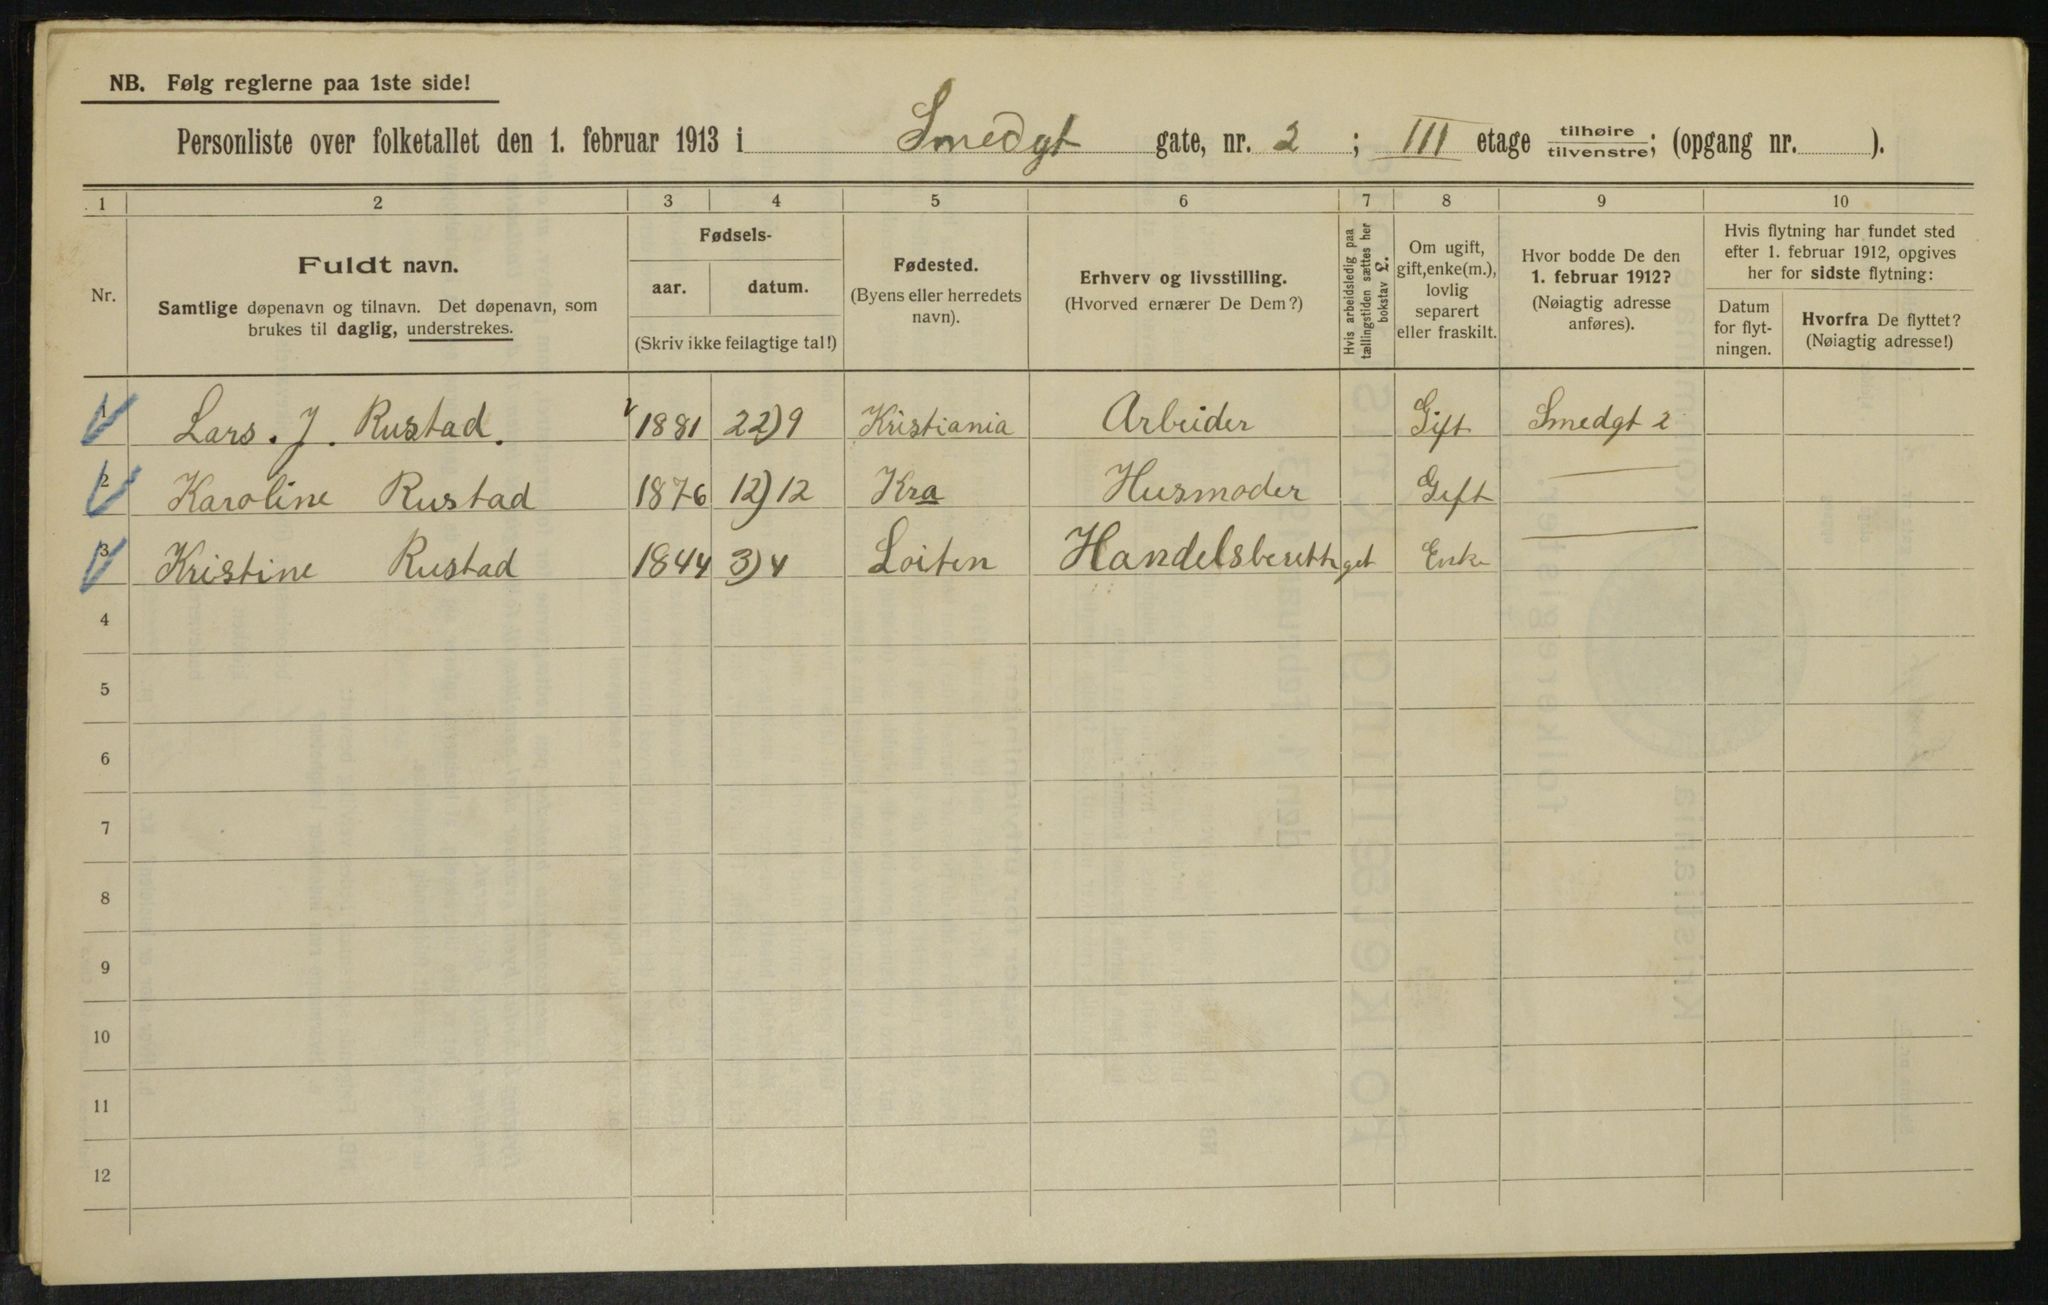 NB. Følg reglerne paa 1ste side!
Personliste over folketallet den 1. februar 1913 i Smedgt gate, nr. 2 ; III etage tilhøire tilvenstre; (opgang nr. ).
1 2 3 4 5 6 7 8 9 10
Nr.
Fuldt navn.
Samtlige døpenavn og tilnavn. Det døpenavn, som
brukes til daglig, understrekes.
Fødsels-
aar. datum.
(Skriv ikke feilagtige tal!)
Fødested.
(Byens eller herredets
navn).
Erhverv og livsstilling.
(Hvorved ernærer De Dem?)
Hvis arbeidsledig paa
tællingstiden sættes her
bokstav £.
Om ugift,
gift, enke(m.),
lovlig
separert
eller fraskilt.
Hvor bodde De den
1. februar 1912?
(Nøiagtig adresse
anføres).
Hvis flytning har fundet sted
efter 1. februar 1912, opgives
her for sidste flytning:
Datum
for flyt-
ningen.
Hvorfra De flyttet?
(Nøiagtig adresse!)
1 Lars. J. Rustad. 1881 22)9 Kristiania Arbeider Gift Smedgt 2
2 Karoline Rustad 1876 12)12 Kra Husmoder Gift —
3 Kristine Rustad 1844 3)4 Loiten Handelsberettiget Enke —
4
5
6
7
8
9
10
11
12